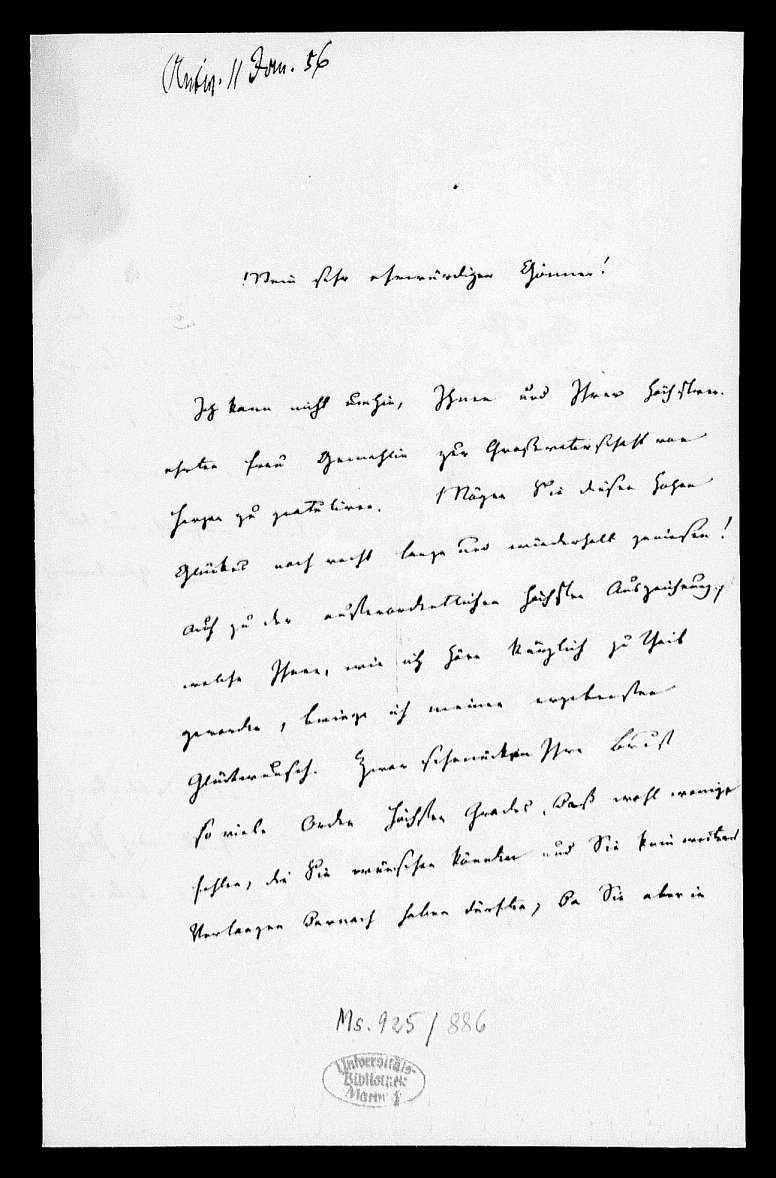 Antw. 11 Jan. 56
Mein sehr ehrwürdiger Gönner!
Ich kann nicht umhin, Ihnen und Ihrer höchstver-
ehrten Frau Gemahlin zur Großvaterschaft von
Herzen zu gratuliren. Mögen Sie diesen hohen
Glückes noch recht lange und wiederholt genießen!
Auch zu der außerordentlichen höchsten Auszeichnung,
welche Ihnen, wie ich höre kürzlich zu Theil
geworden, bringe ich meinen ergebensten
Glückwunsch. Zwar schmücken Ihre Brust
so viele Orden höchsten Grades, daß wohl wenige
fehlen, die Sie wünschen könnten und Sie kein weiteres
Verlangen darnach haben dürften, da Sie aber in
Ms. 925/886
Universitäts-
Bibliothek
Marburg